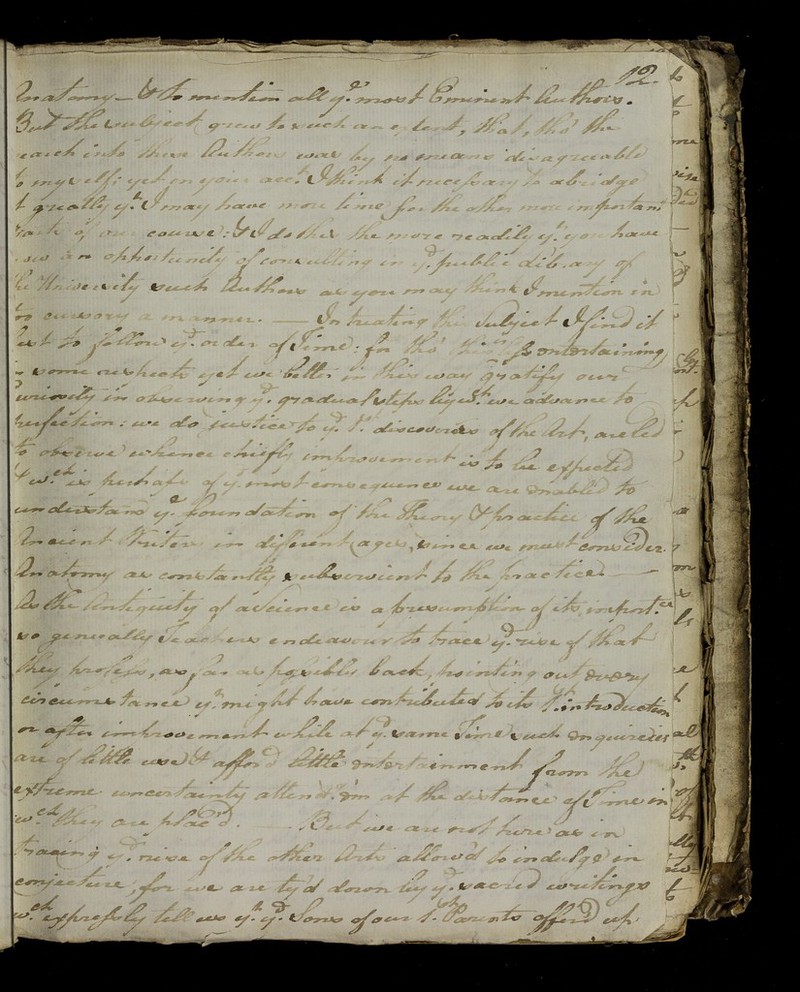 12.
Anatomy — & to mention all ye. most Eminent Authors.
But the subject grew to such an extent, that, tho' the
search into these Authors was by no means disagreeable
to myself: yet on your acct. I think it necessary to abridge
it greatly yt. I may have more time for the other more important
parts of our course: & I do this the more readily yt. you have
now an opportunity of consulting in ye. public Library of
the University such Authors as you may think I mention in
too cursory a manner. — In treating this Subject I find it
best to follow ye. order of Time: for tho' this is entertaining
in some respects yet we better in this way gratify our
curiosity in observing ye. gradual steps by wch. we advance to
perfection: we do justice to ye. 1st. discoverers of the Art, are led
to observe whence chiefly improvement is to be expected
& wch. is perhaps of ye. most consequence we are enabled to
understand ye. foundation of the Theory & practice of the
Ancient Writers in different ages, since we must consider
Anatomy as constantly subservient to the practice. —
As the Antiquity of a Science is a presumption of its importce.
so generally Teachers endeavour to trace ye. rise of that
they profess, as far as possible back, pointing out every
circumstance yt. might have contributed to its 1st. introduction
or after improvement while at ye. same Time such enquiries
are of little use & afford little entertainment from the
extreme uncertainty attendg. 'em at the distance of Time in
wch. they are plac'd. — But we are not here as in
tracing ye. rise of the other Arts allow'd to indulge in
conjecture, for we are ty'd down by ye. sacred writings
wch. expressly tell us yt. ye. Sons of our 1st. Parents offer'd up